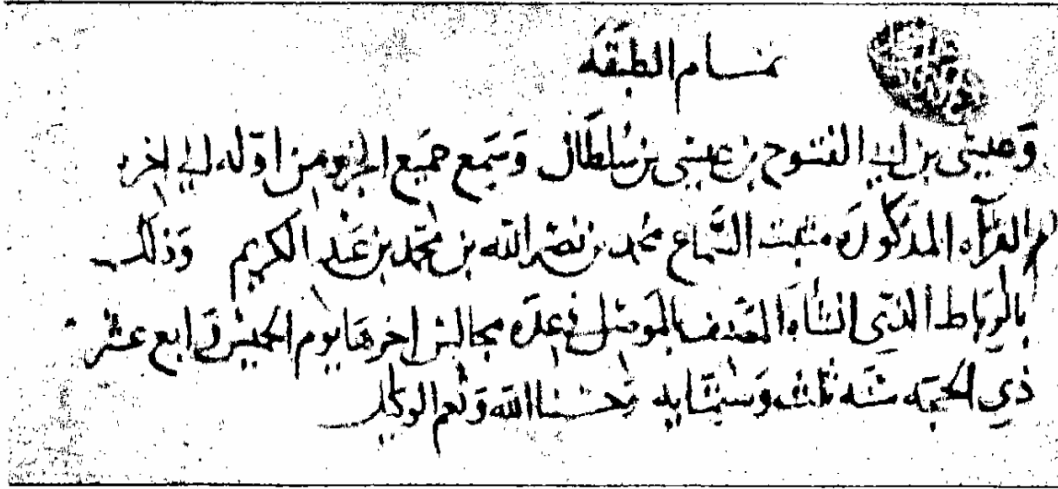 تمام الطبقة
وعيسى بن أبي الفتوح بن عيسى بن سلطان وسمع جميع الجزء من أوله إلى آخره
القرآه المذكوره مثبت السماع محمد بن نصر الله بن محمد بن عبد الكريم وذلك
بالرباط الذي انشاه المصنف بالموصل في عدة مجالس اخرها يوم الخميس رابع عشر
ذي الحجه سنه ثلث وستمايه وحسبنا الله ونعم الوكيل